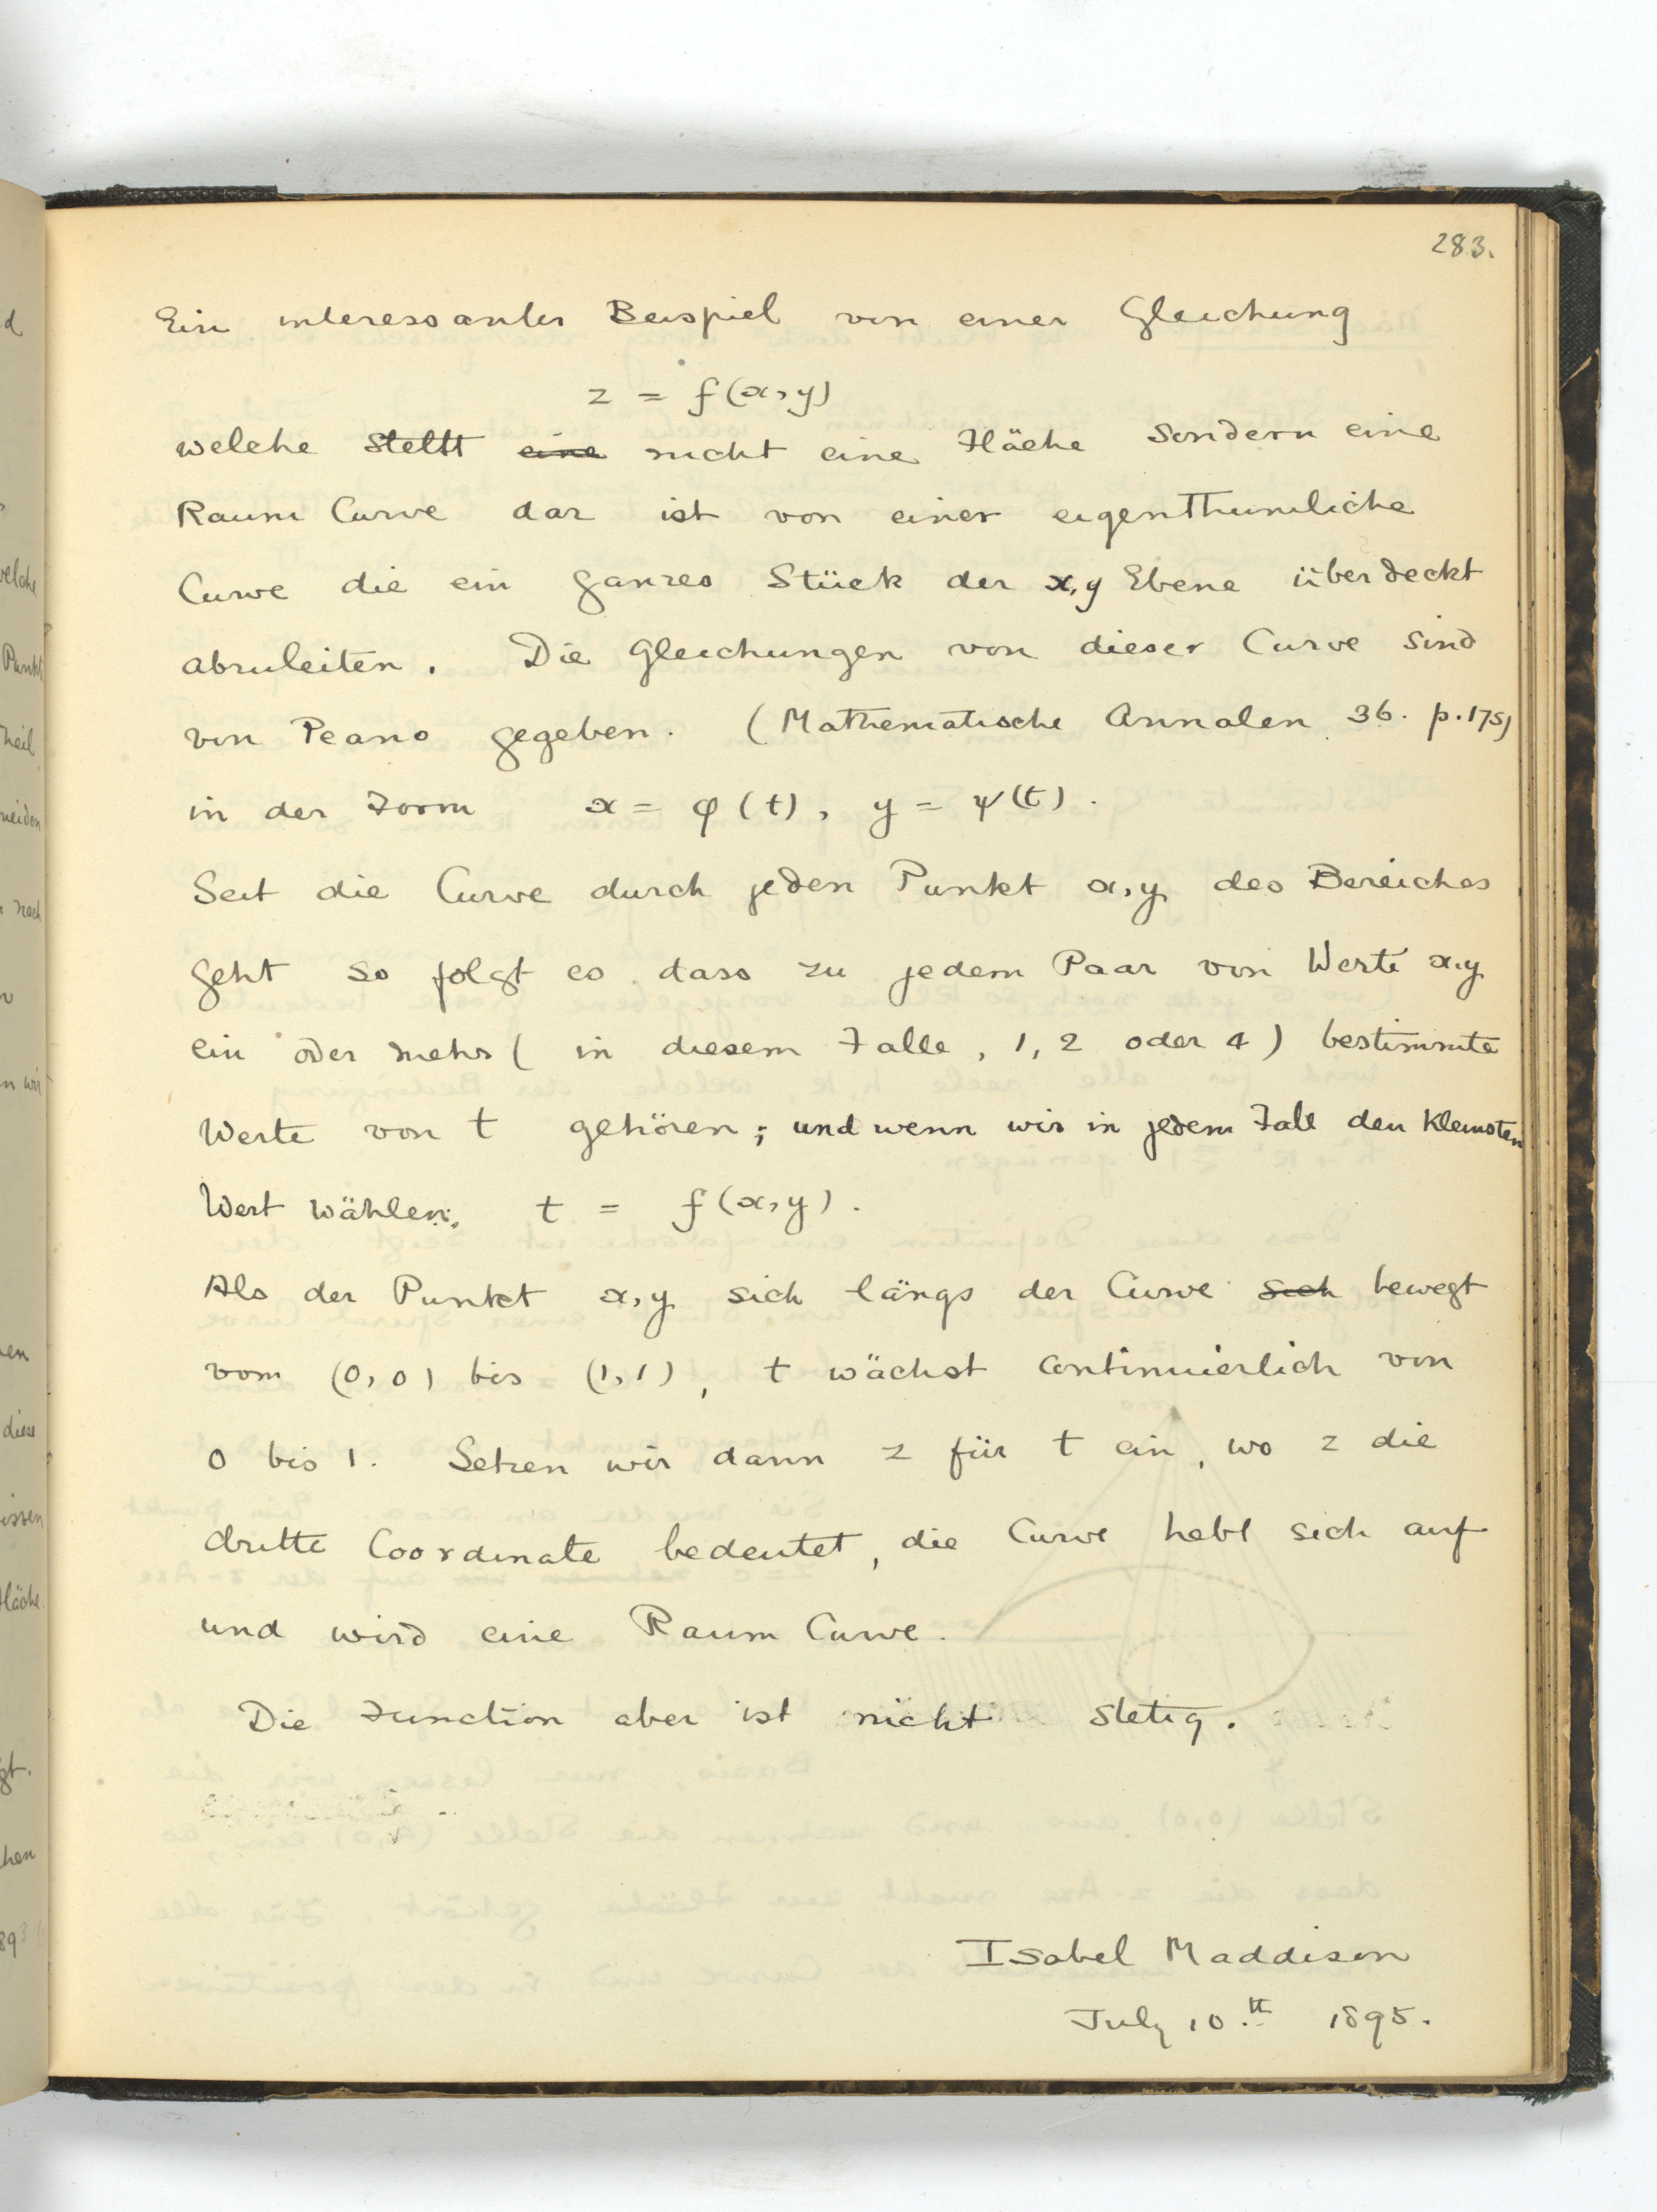 283.
Ein interessanter Beispiel von einer Gleichung
z = f(x,y)
welche stellt eine nicht eine Fläche sondern eine
Raum Curve dar ist von einer eigenthumliche
Curve die ein ganzes Stück der x,y Ebene überdeckt
abzuleiten. Die Gleichungen von dieser Curve sind
von Peano gegeben. (Mathematische Annalen 36. p.175)
in der Form x = φ(t), y = ψ(t).
Seit die Curve durch jeden Punkt x,y des Bereiches
geht so folgt es dass zu jedem Paar von Werte x,y
ein oder mehr (in diesem Falle, 1, 2 oder 4) bestimmte
Werte von t gehören; und wenn wir in jedem Fall den kleinsten
Wert wählen, t = f(x,y).
Als der Punkt x,y sich längs der Curve sich bewegt
vom (0,0) bis (1,1), t wächst continuierlich von
0 bis 1. Setzen wir dann z für t ein, wo z die
dritte Coordinate bedeutet, die Curve hebt sich auf
und wird eine Raum Curve.
Die Function aber ist nicht stetig.
Isabel Maddison
July 10th 1895.
d
welche
Punkt
Theil
neiden
nach
n wir
en
diese
issen
Fläche.
gt.
hen
893